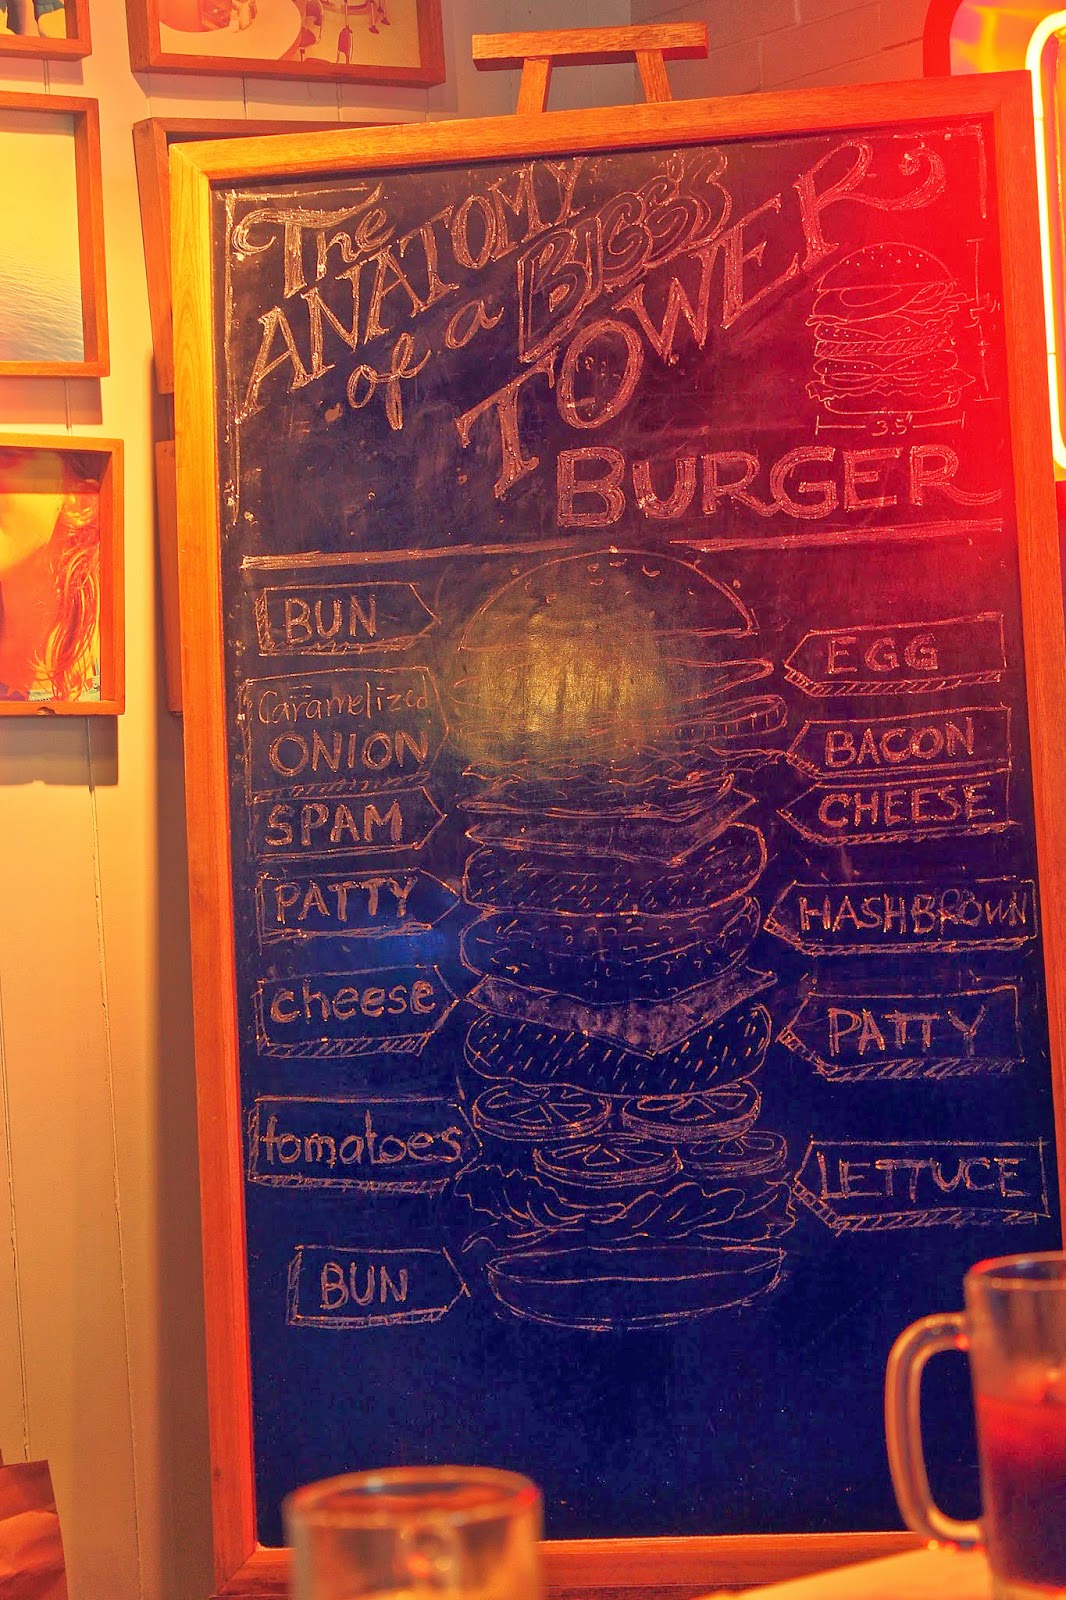 The
ANATOMY
of a BIGG'S
TOWER
BURGER
3.5"
BUN
EGG
Caramelized
ONION
BACON
SPAM
CHEESE
PATTY
HASHBROWN
cheese
PATTY
tomatoes
LETTUCE
BUN